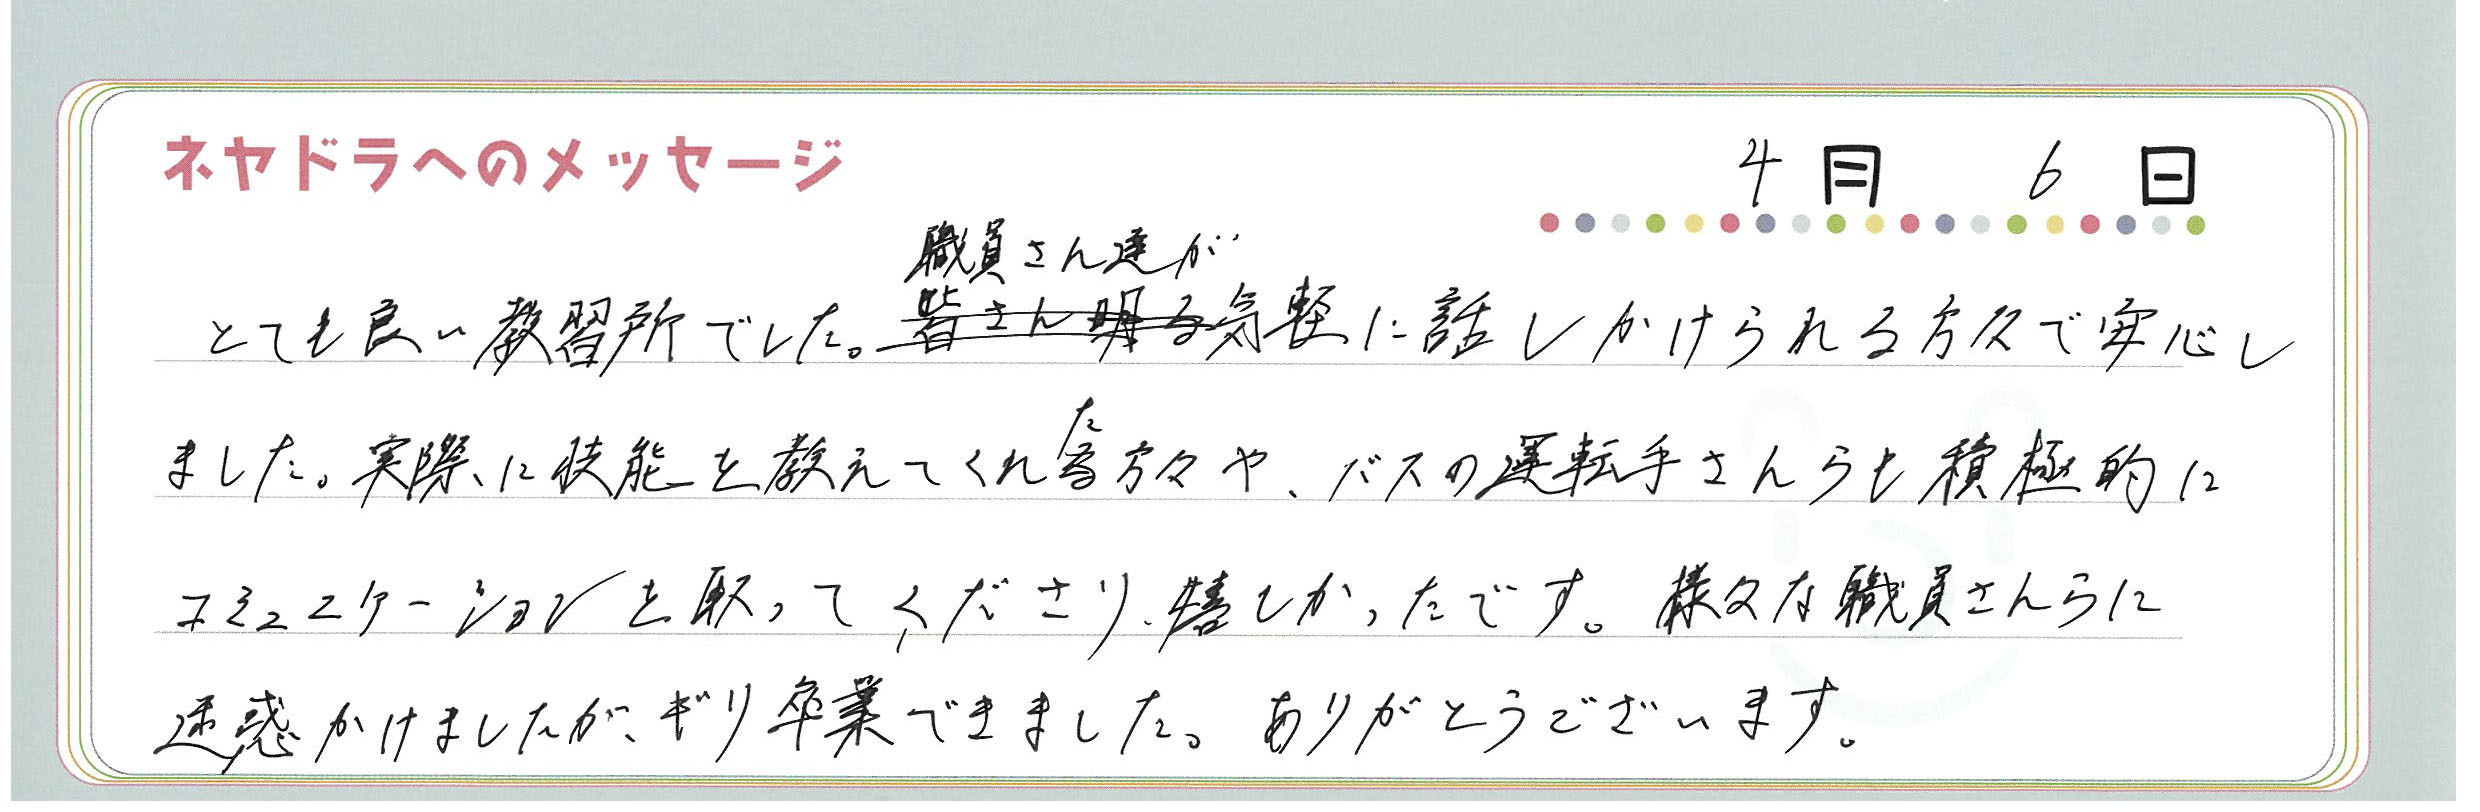 ネヤドラへのメッセージ
4月 6日
職員さん達が
とても良い教習所でした。皆さん明る気軽に話しかけられる方々で安心し
た
ました。実際に技能を教えてくれる方々や、バスの運転手さんらも積極的に
コミュニケーションを取ってくださり、嬉しかったです。様々な職員さんらに
迷惑かけましたが、ギリ卒業できました。ありがとうございます。